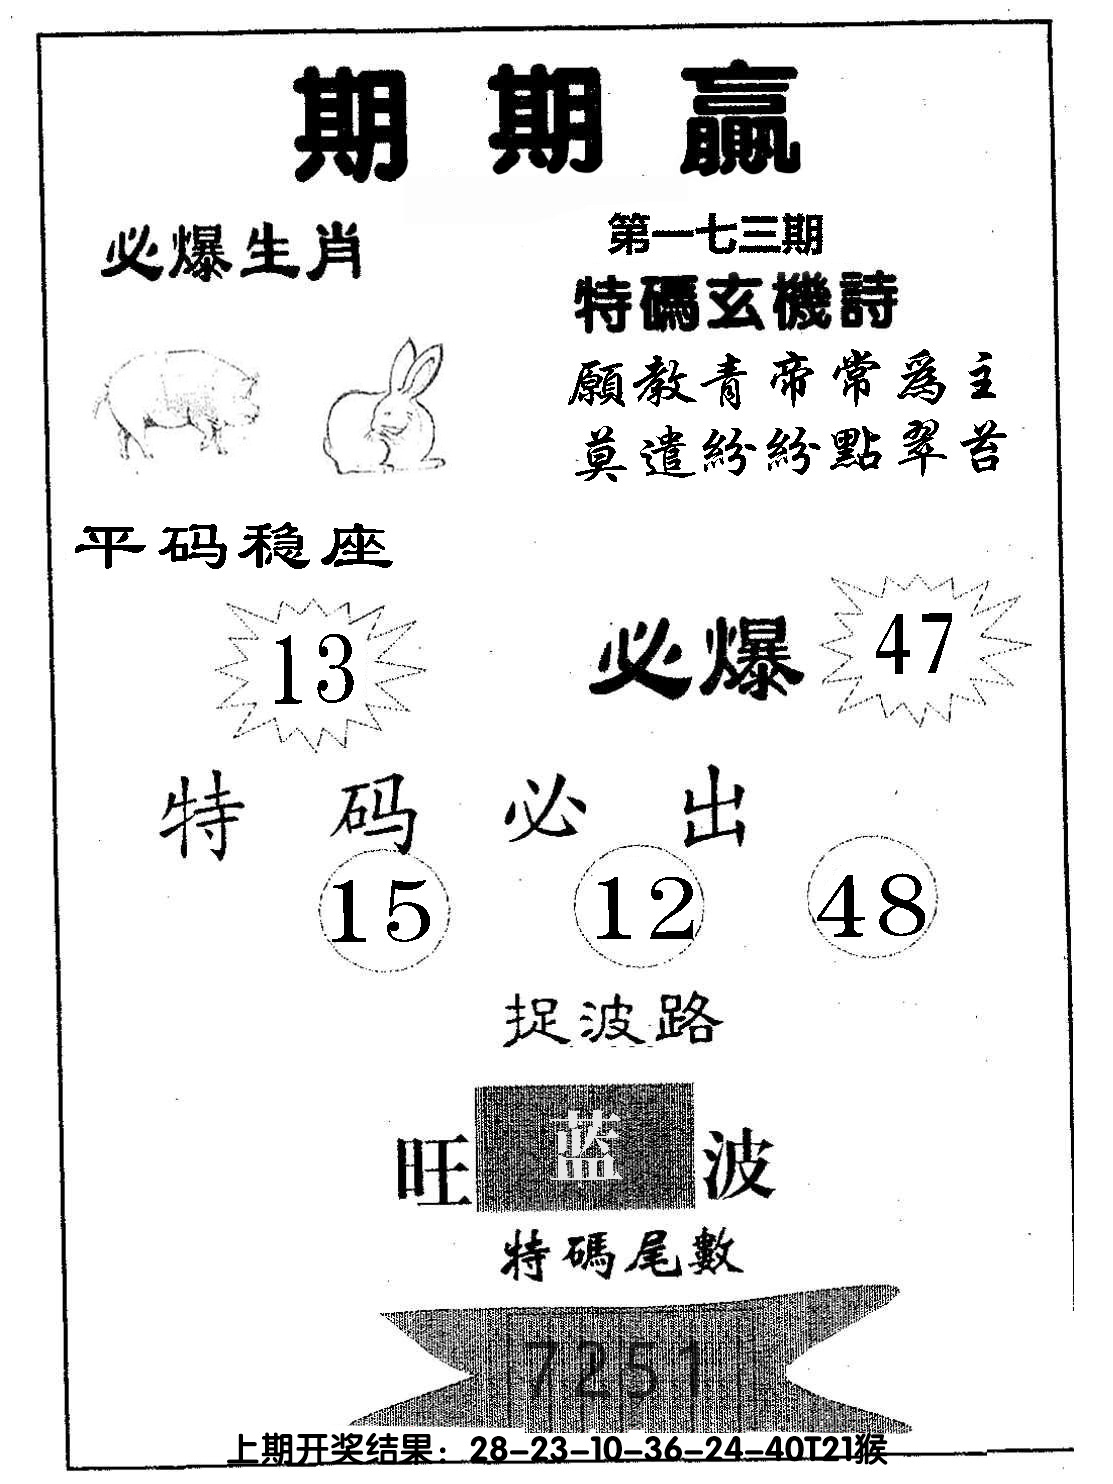 期期赢
必爆生肖
第一七三期
特碼玄機詩
願教青帝常爲主
莫遣紛紛點翠苔
平码稳座
13
必爆 47
特码必出
15 12 48
捉波路
旺蓝波
特碼尾數
7251
上期开奖结果：28-23-10-36-24-40T21猴